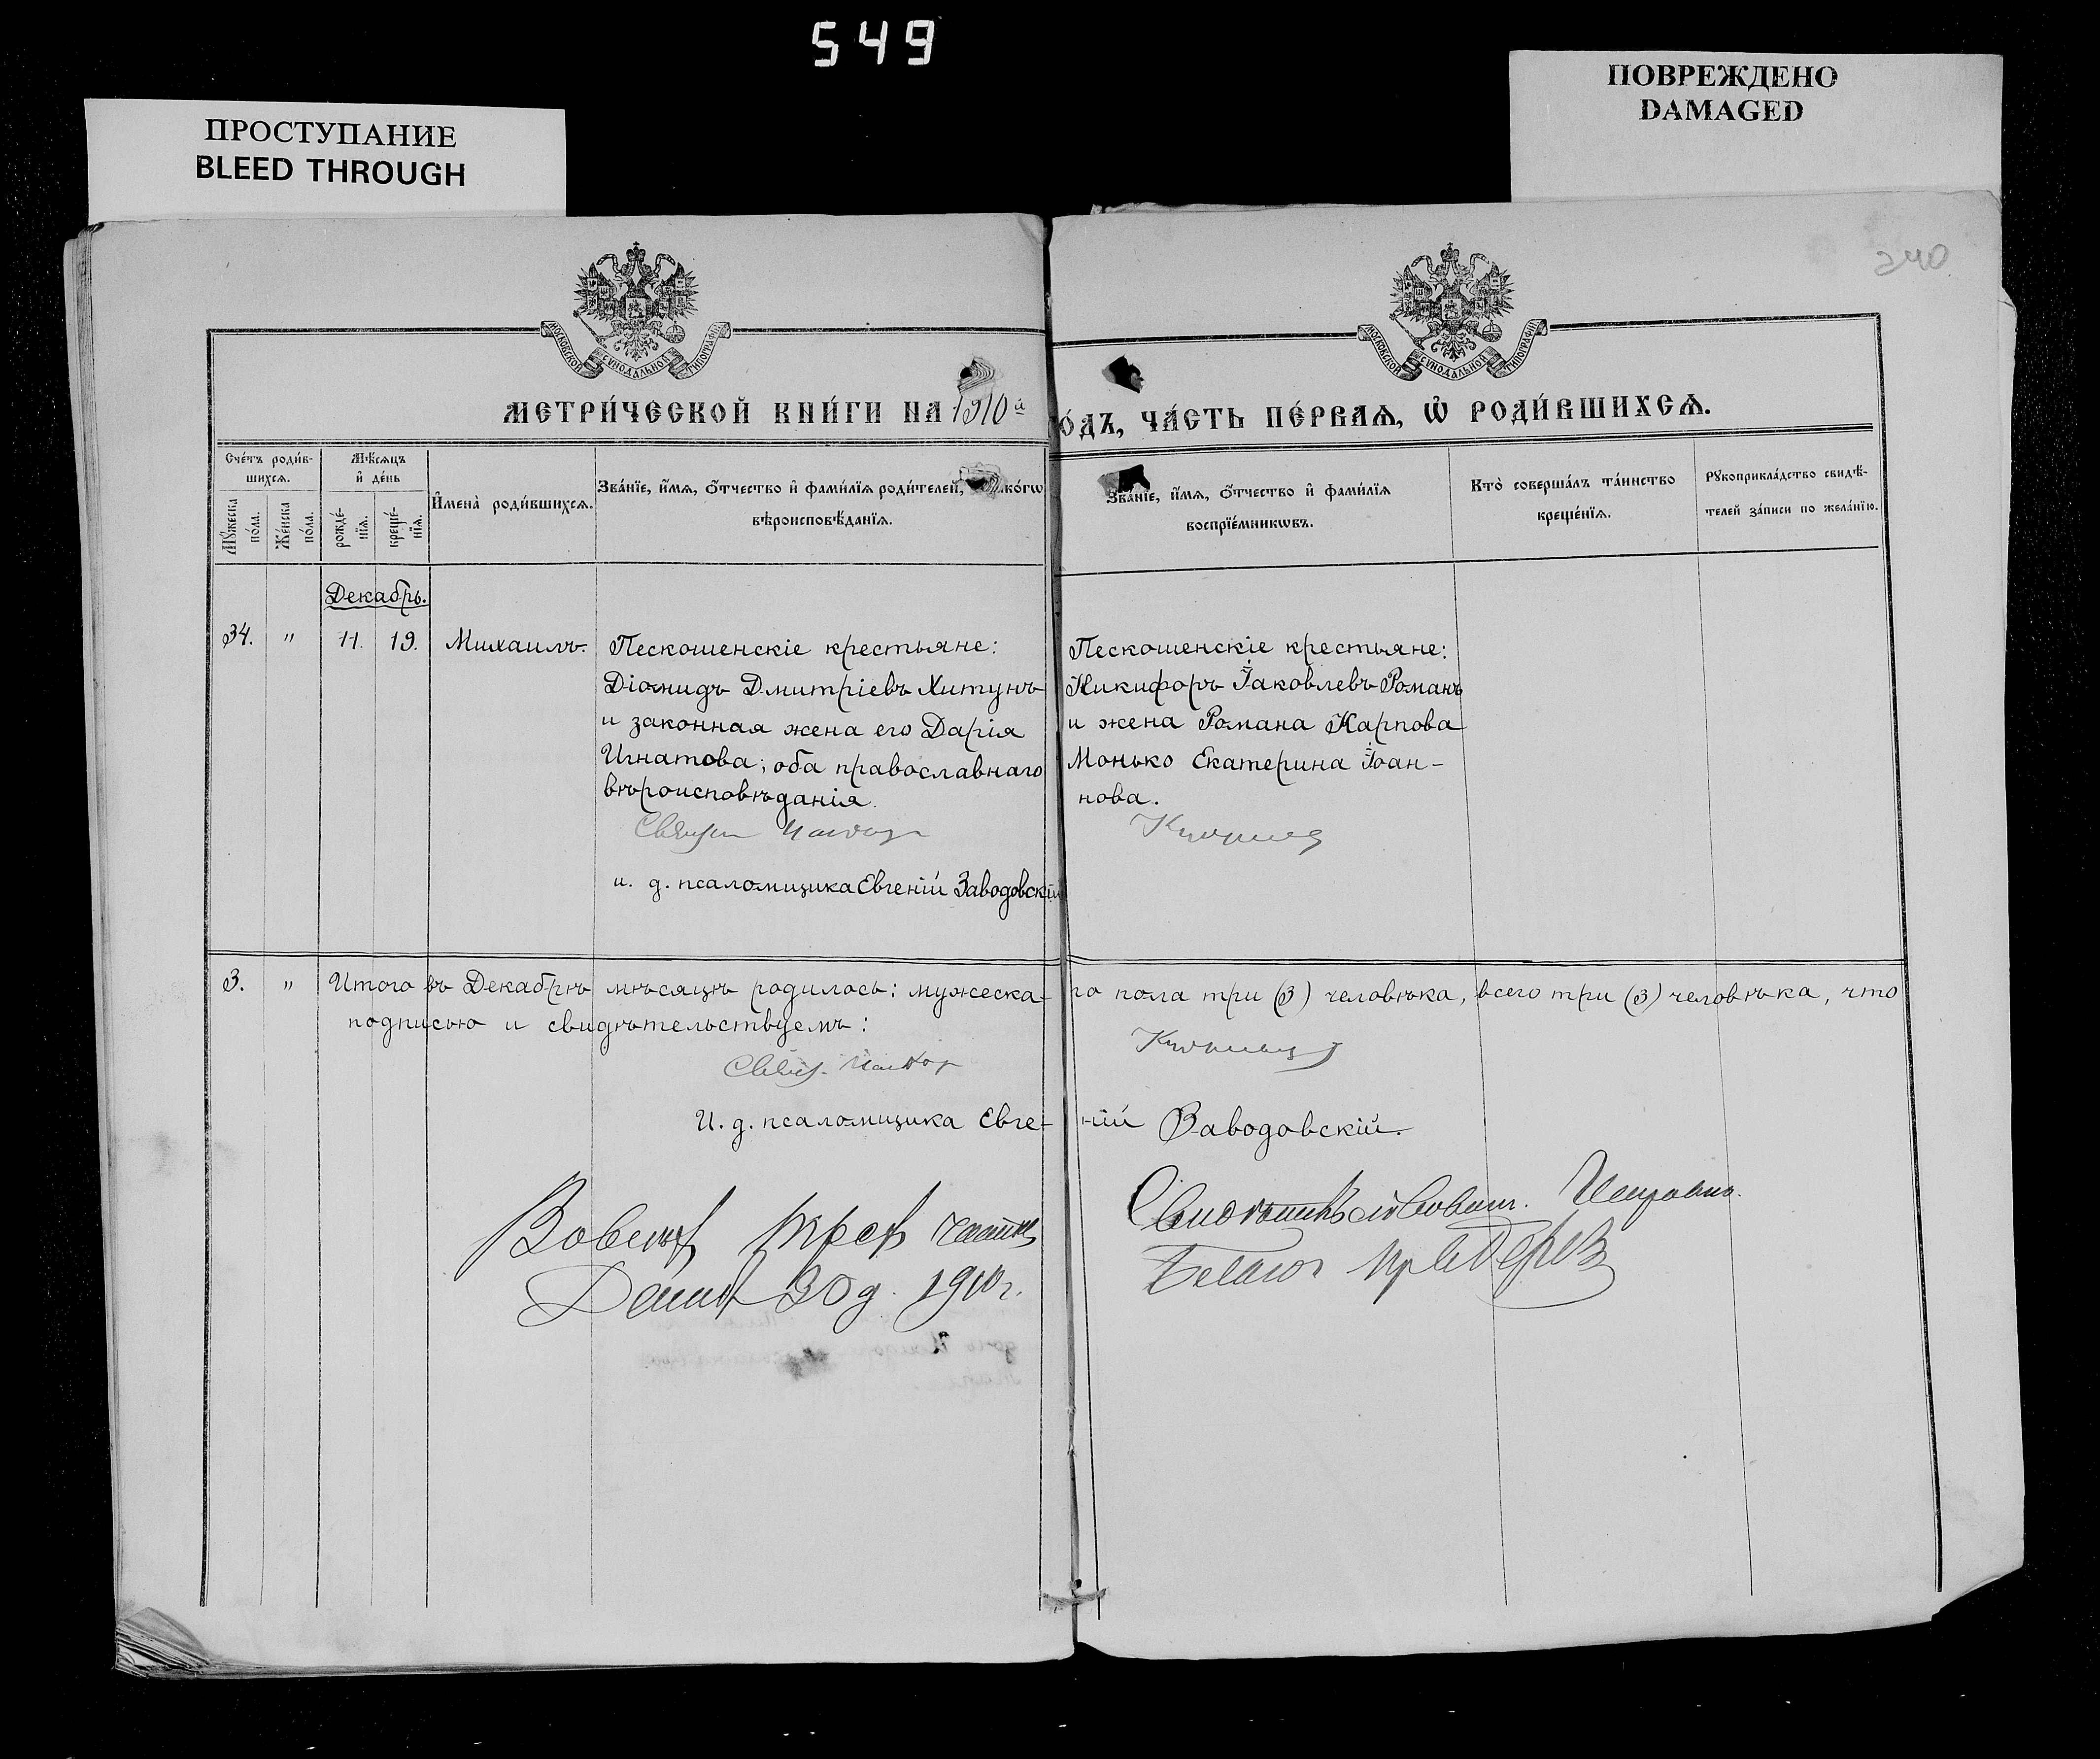 549
ПРОСТУПАНИЕ
BLEED THROUGH
ПОВРЕЖДЕНО
DAMAGED
240
МОСКОВСКОЙ СѴНОДАЛЬНОЙ ТИПОГРАФІИ
МОСКОВСКОЙ СѴНОДАЛЬНОЙ ТИПОГРАФІИ
МЕТРИ́ЧЕСКОЙ КНИ́ГИ НА 1910й
ГО́ДЪ, ЧА́СТЬ ПЕ́РВАѦ, Ѡ҆ РОДИ́ВШИХСѦ.
Сче́тъ роди́в-
шихсѧ.
Мꙋ́жеска по́ла.
Же́нска по́ла.
Мѣ́сѧцъ
и҆ де́нь
рожде́-
нїѧ.
креще́-
нїѧ.
И҆мена̀ роди́вшихсѧ.
Зва́нїе, и҆́мѧ, ѻ҆́тчество и҆ фами́лїѧ роди́телей, и҆ како́гѡ
вѣроисповѣ́данїѧ.
Зва́нїе, и҆́мѧ, ѻ҆́тчество и҆ фами́лїѧ
воспрїе́мникѡвъ.
Кто̀ соверша́лъ та́инство
креще́нїѧ.
Рꙋкоприкла́дство свидѣ́-
телей за́писи по жела́нїю.
Декабрь.
34. " 11. 19. Михаилъ.
Пескошенскіе крестьяне:
Діомидъ Дмитріевъ Хитунъ
и законная жена его Дарія
Игнатова; оба православнаго
вѣроисповѣданія.
и. д. псаломщика Евгеній Заводовскій
Пескошенскіе крестьяне:
Никифоръ Іаковлевъ Романъ
и жена Романа Карпова
Монько Екатерина Іоан-
нова.
3. " Итого въ Декабрѣ мѣсяцѣ родилось: мужеска-
го пола три (3) человѣка, всего три (3) человѣка, что
подписью и свидѣтельствуемъ:
И. д. псаломщика Евге-
ній Заводовскій.
30 д. 1910 г.